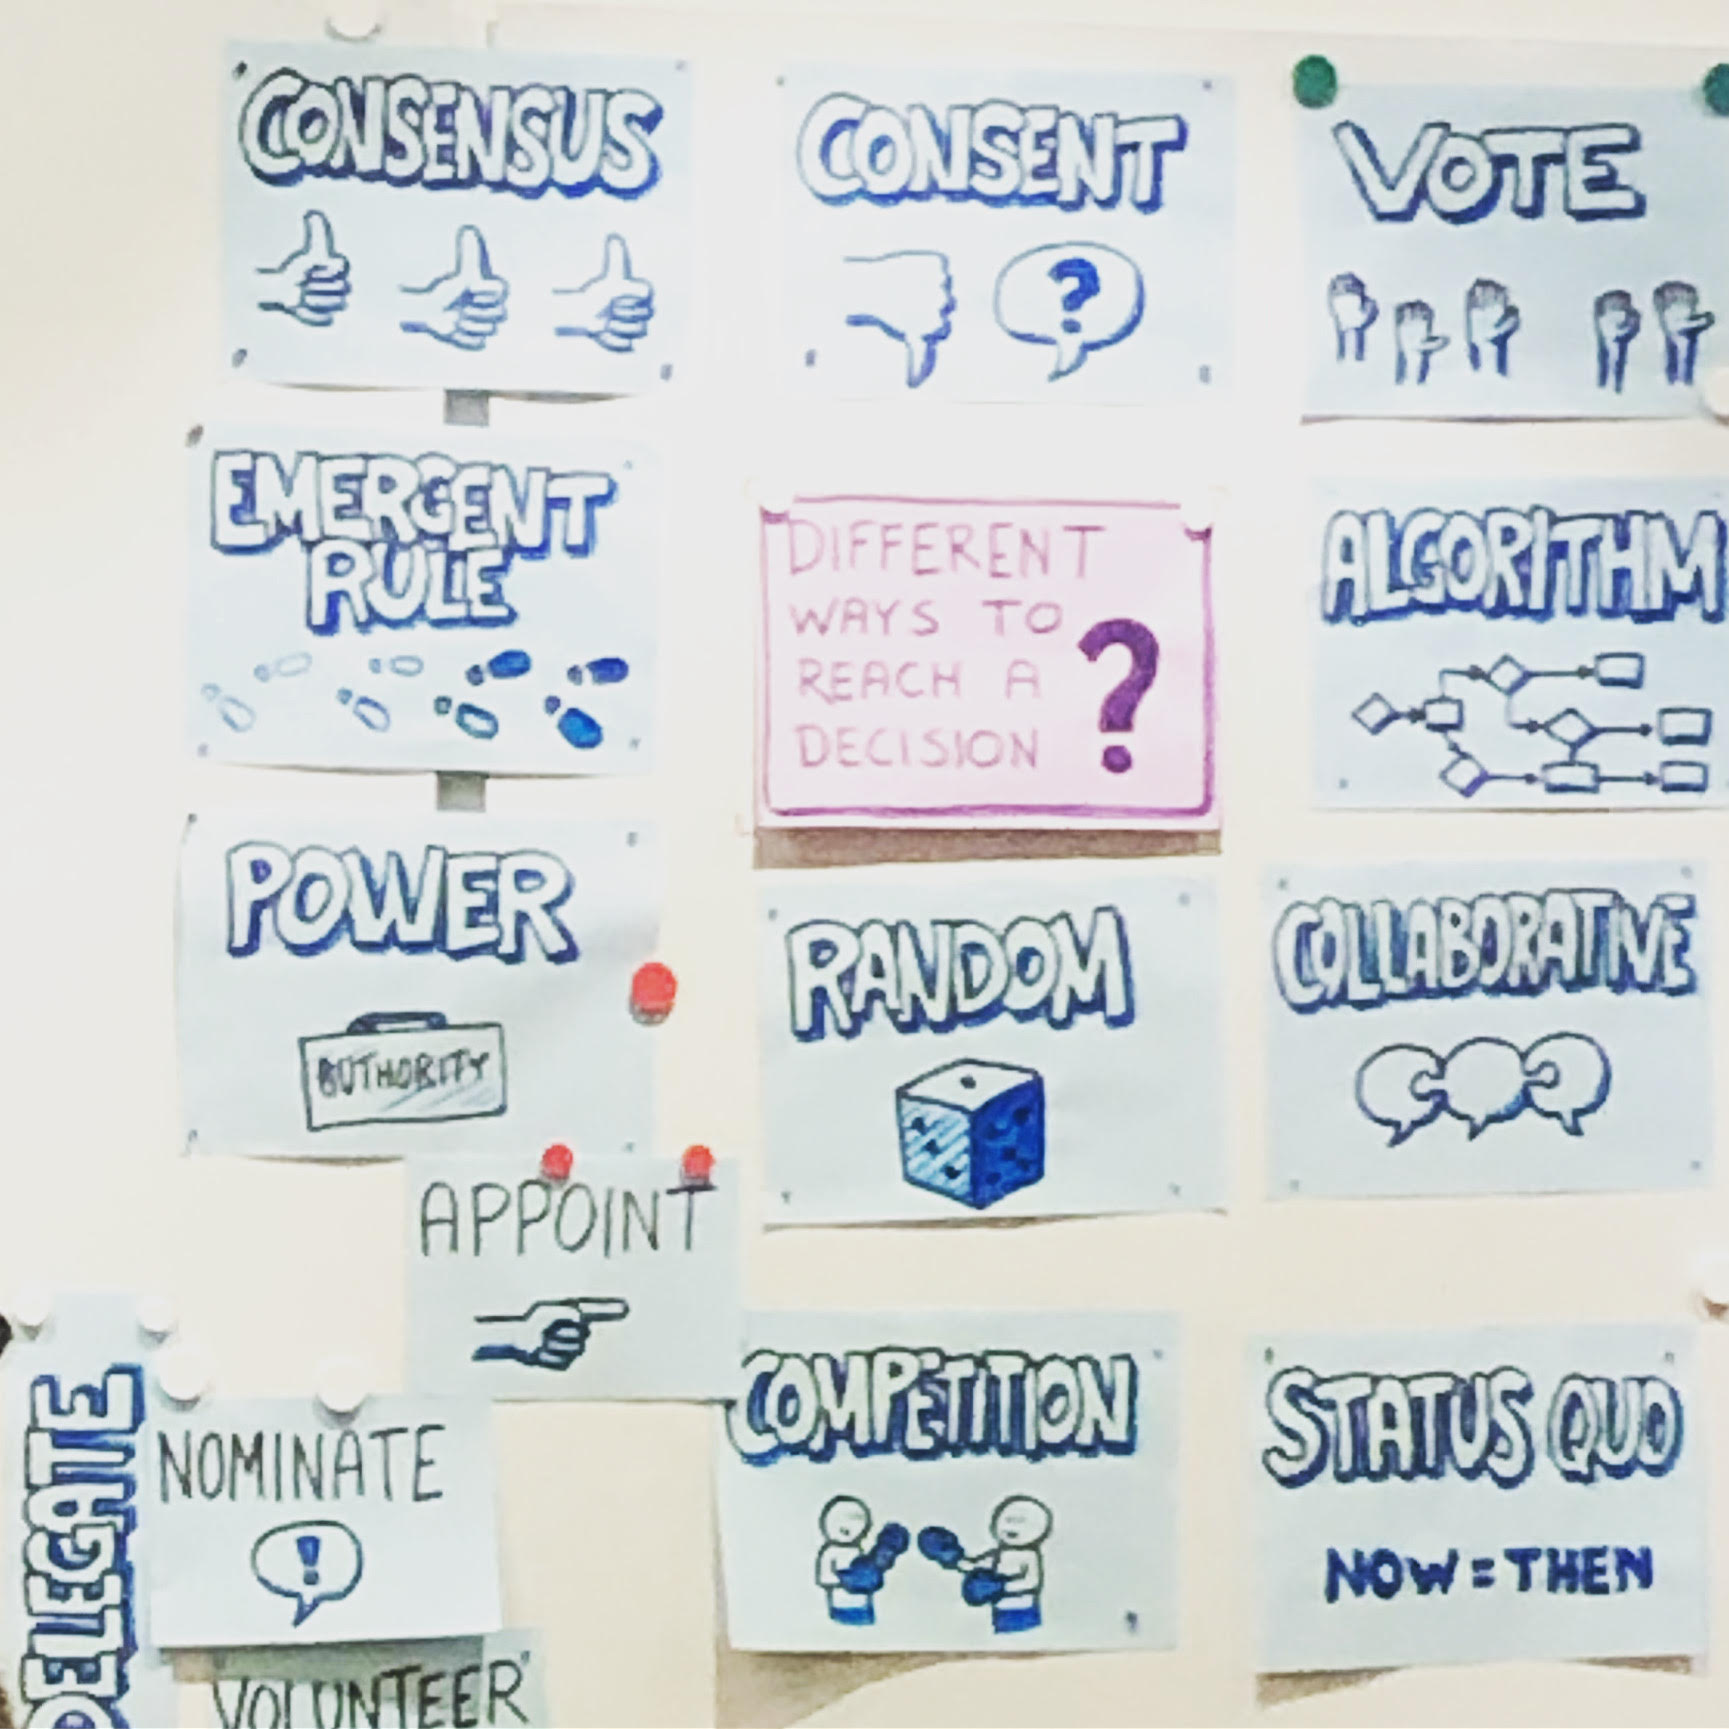 CONSENSUS
CONSENT
?
VOTE
EMERGENT
RULE
DIFFERENT
WAYS TO
REACH A
DECISION
?
ALGORITHM
POWER
AUTHORITY
RANDOM
COLLABORATIVE
APPOINT
COMPETITION
STATUS QUO
NOW = THEN
DELEGATE
NOMINATE
!
VOLUNTEER